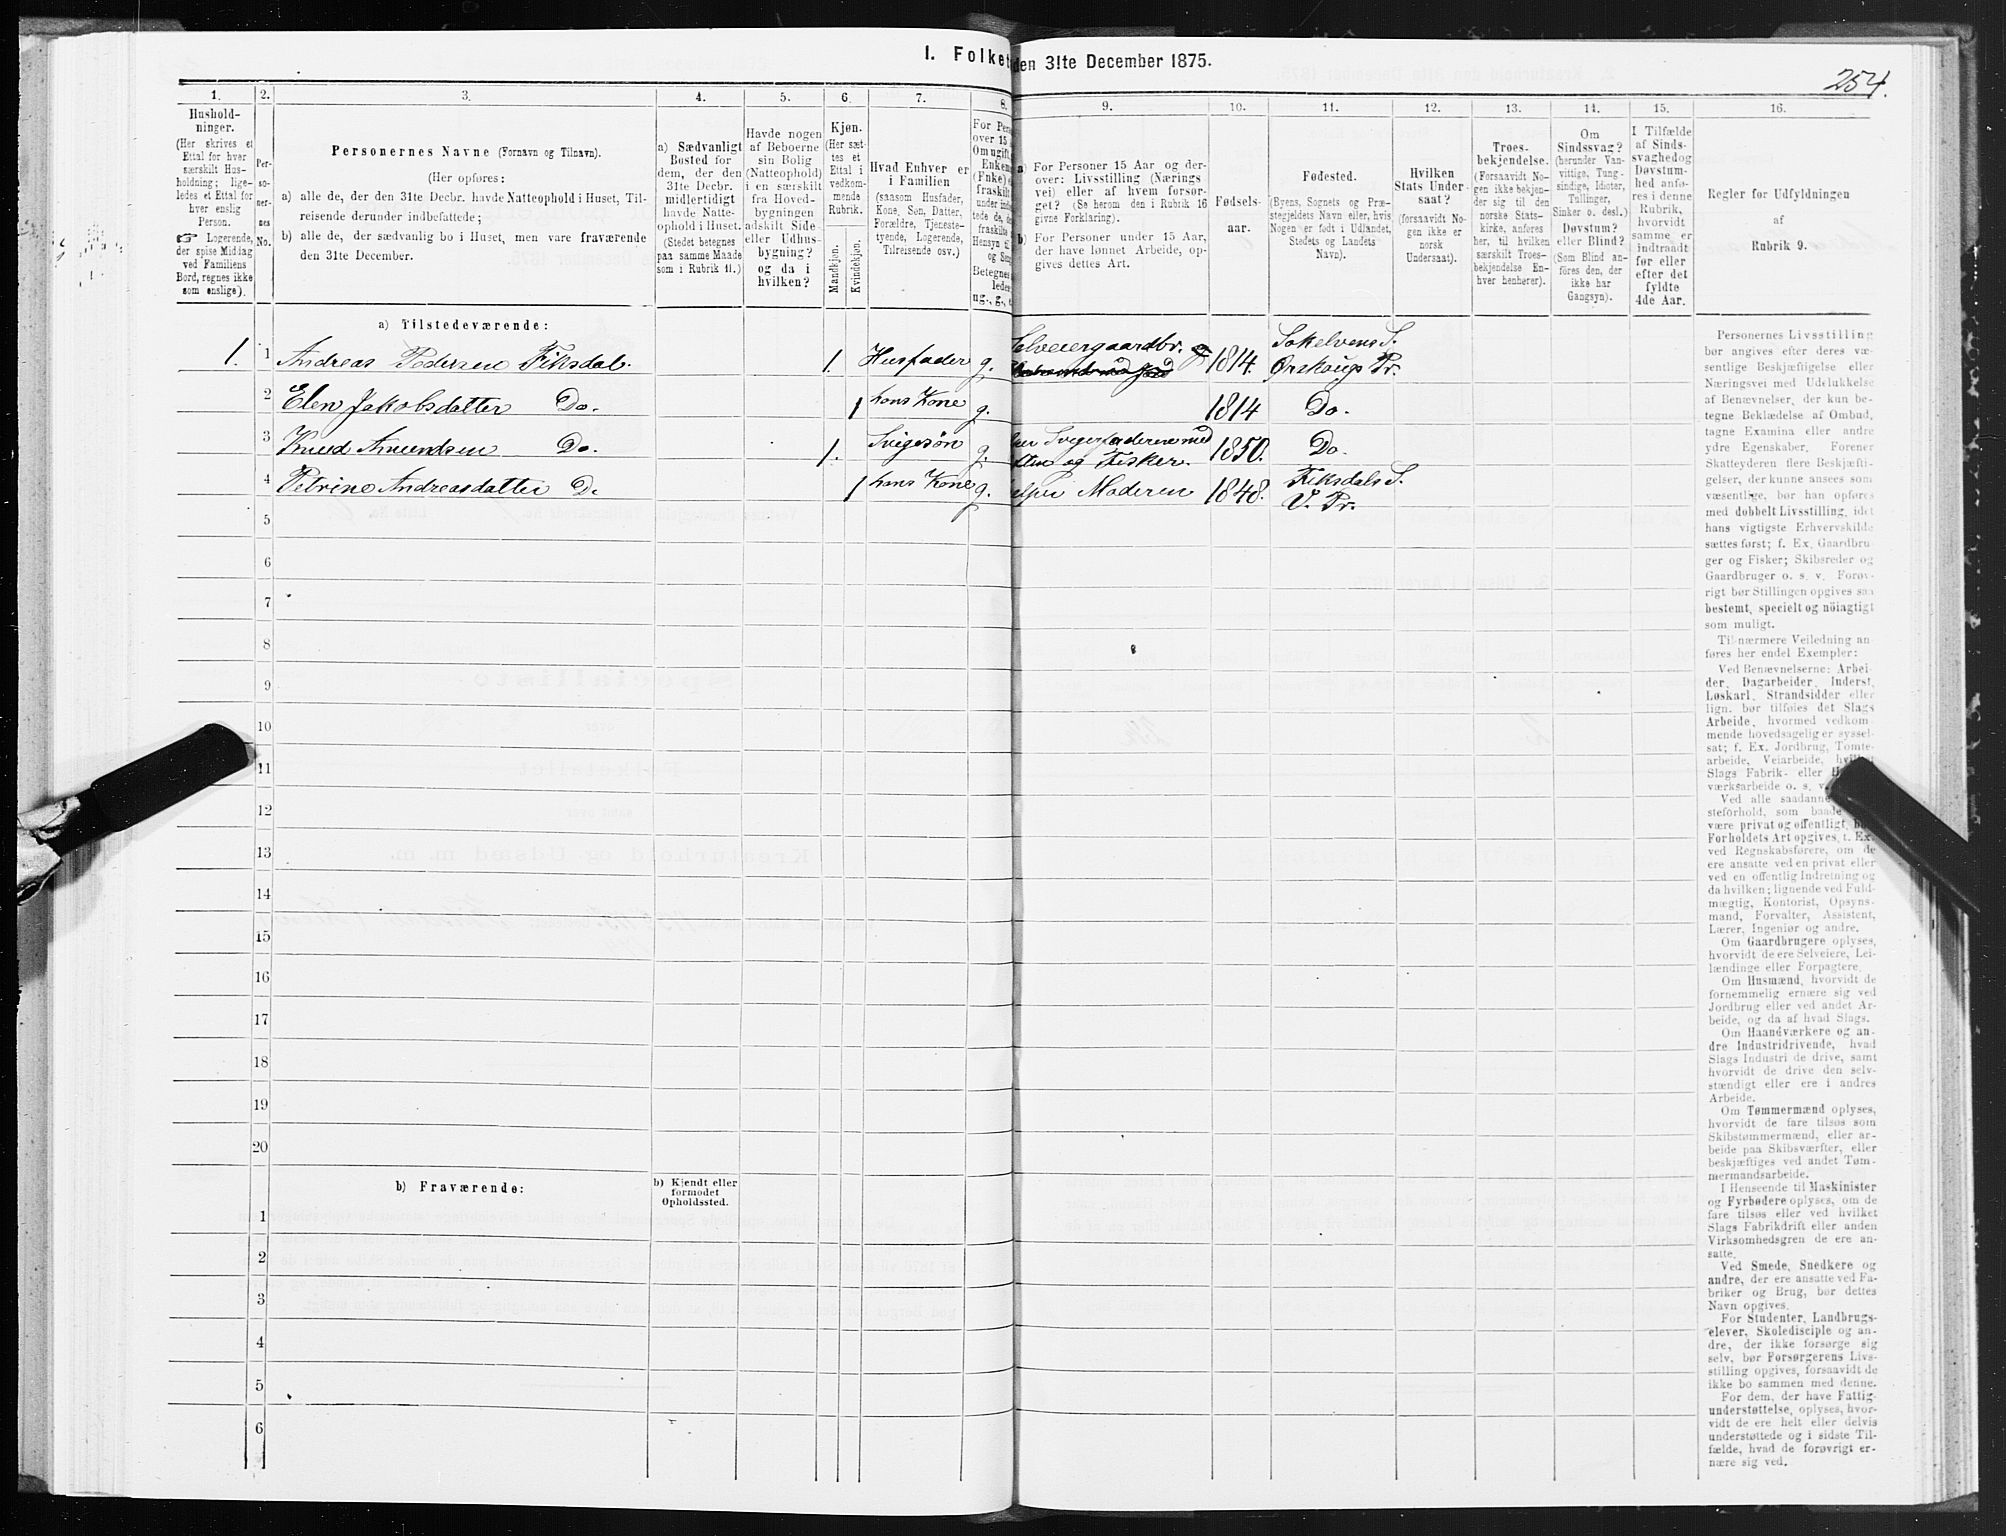 I. Folket den 31te December 1875.
254.
1. 2. 3. 4. 5. 6. 7. 8. 9. 10. 11. 12. 13. 14. 15. 16.
Hushold-
ninger.
(Her skrives et
Ettal for hver
særskilt Hus-
holdning; lige-
ledes et Ettal for
hver enslig
Person.
☞ Logerende,
der spise Middag
ved Familiens
Bord, regnes ikke
som enslige).
Per-
so-
ner-
nes
No.
Personernes Navne (Fornavn og Tilnavn).
(Her opføres:
a) alle de, der den 31te Decbr. havde Natteophold i Huset, Til-
reisende derunder indbefattede;
b) alle de, der sædvanlig bo i Huset, men vare fraværende
den 31te December.
a) Sædvanligt
Bosted for
dem, der den
31te Decbr.
midlertidigt
havde Natte-
ophold i Huset.
(Stedet betegnes
paa samme Maade
som i Rubrik 11.)
Havde nogen
af Beboerne
sin Bolig
(Natteophold)
i en særskilt
fra Hoved-
bygningen
adskilt Side-
eller Udhus-
bygning?
og da i
hvilken?
Kjøn.
(Her sæt-
tes et
Ettal i
vedkom-
mende
Rubrik.
Mandkjøn.
Kvindekjøn.
Hvad Enhver er
i Familien
(saasom Husfader,
Kone, Søn, Datter,
Forældre, Tjeneste-
tyende, Logerende,
Tilreisende osv.)
For Pers
over 15
Om ugift,
Enkem
(Fnke) e
fraskilt
under ind
tede de,
fraskilte
Hensyn til
og Seng
Betegnes
ledes
ug., g., e
a) For Personer 15 Aar og der-
over: Livsstilling (Nærings
vei) eller af hvem forsør-
get? (Se herom den i Rubrik 16
givne Forklaring).
b) For Personer under 15 Aar,
der have lønnet Arbeide, op-
gives dettes Art.
Fødsels-
aar.
Fødested.
(Byens, Sognets og Præ-
stegjeldets Navn eller, hvis
Nogen er født i Udlandet,
Stedets og Landets
Navn).
Hvilken
Stats Under-
saat?
(forsaavidt No-
gen ikke er
norsk
Undersaat).
Troes-
bekjendelse.
(Forsaavidt No-
gen ikke bekjen-
der sig til den
norske Stats-
kirke, anføres
her, til hvilken
særskilt Troes-
bekjendelse En-
hver henhører).
Om
Sindssvag?
(herunder Van-
vittige, Tung-
sindige, Idioter,
Tullinger,
Sinker o. desl.)
Døvstum?
eller Blind?
(Som Blind an-
føres den, der
ikke har
Gangsyn).
I Tilfælde
af Sinds-
svaghed og
Døvstum-
hed anfø-
res i denne
Rubrik,
hvorvidt
samme er
indtraadt
før eller
efter det
fyldte
4de Aar.
Regler for Udfyldningen
af
Rubrik 9.
a) Tilstedeværende:
1. 1 Andreas Pedersen Fiksdal. 1. Husfader g. Selveiergaardbr. 1814. Søkelvens S. Ørskougs Pr.
2 Elen Jakobsdatter Do. 1 hans Kone g. 1814 Do.
3 Knud Amundsen Do. 1. Svigesøn g. Svigerfaderen med og Fisker. 1850. Do.
4 Petrine Andreasdatter D. 1 hans Kone g. Moderen 1848. Fiksdals S. V. Pr.
5
6
7
8
9
10
11
12
13
14
15
16
17
18
19
20
b) Fraværende:
b) Kjendt eller
formodet
Opholdssted.
1
2
3
4
5
6
Personernes Livsstilling
bør angives efter deres væ-
sentlige Beskjæftigelse eller
Næringsvei med Udelukkelse
af Benævnelser, der kun be-
tegne Beklædelse af Ombud,
tagne Examina eller andre
ydre Egenskaber. Forener
Skatteyderen flere Beskjæfti-
gelser, der kunne ansees som
væsentlige, bør han opføres
med dobbelt Livsstilling, idet
hans vigtigste Erhvervskilde
sættes først; f. Ex. Gaardbru-
ger og Fisker; Skibsreder og
Gaardbruger o. s. v. Forøv-
rigt bør Stillingen opgives saa
bestemt, specielt og nöiagtigt
som muligt.
Til nærmere Veiledning an-
føres her endel Exempler:
Ved Benævnelserne: Arbei-
der, Dagarbeider, Inderst,
Løskarl, Strandsidder eller
lign. bør tilføies det Slags
Arbeide, hvormed vedkom-
mende hovedsagelig er syssel-
sat; f. Ex. Jordbrug, Tomte-
arbeide, Veiarbeide,
Slags Fabrik- eller
værksarbeide o. s. v.
Ved alle saadanne
steforhold, som baade
være privat og offentligt,
Forholdets Art opgives, t. Ex.
ved Regnskabsførere, om de
ere ansatte ved en privat eller
ved en offentlig Indretning og
da hvilken; lignende ved Fuld-
mægtig, Kontorist, Opsyns-
mand, Forvalter, Assistent,
Lærer, Ingeniør og andre.
Om Gaardbrugere oplyses,
hvorvidt de ere Selveiere, Lei-
lændinge eller Forpagtere.
Om Husmænd, hvorvidt de
fornemmelig ernære sig ved
Jordbrug eller ved andet Ar-
beide, og da af hvad Slags.
Om Haandværkere og an-
dre Industridrivende, hvad
Slags Industri de drive, samt
hvorvidt de drive den selv-
stændigt eller ere i andres
Arbeide.
Om Tømmermænd oplyses,
hvorvidt de fare tilsøs som
Skibstømmermænd, eller ar-
beide paa Skibsværfter, eller
beskjæftiges ved andet Tøm-
mermandsarbeide.
I Henseende til Maskinister
og Fyrbødere oplyses, om de
fare tilsøs eller ved hvilket
Slags Fabrikdrift eller anden
Virksomhedsgren de ere an-
satte.
Ved Smede, Snedkere og
andre, der ere ansatte ved Fa-
briker og Brug, bør dettes
Navn opgives.
For Studenter, Landbrugs-
elever, Skoledisciple og an-
dre, der ikke forsørge sig
selv, bør Forsørgerens Livs-
stilling opgives, forsaavidt de
ikke bo sammen med denne.
For dem, der have Fattig-
understøttelse, oplyses, hvor-
vidt de ere helt eller delvis
understøttede og i sidste Til-
fælde, hvad de forøvrigt er-
nære sig ved.